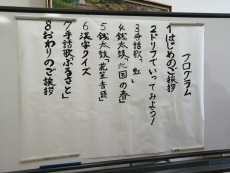 プログラム
1はじめのご挨拶
2ドリフでいってみよう!
3手話歌「虹」
4銭太鼓「北国の春」
5銭太鼓「花笠音頭」
6漢字クイズ
7手話歌「ふるさと」
8おわりのご挨拶